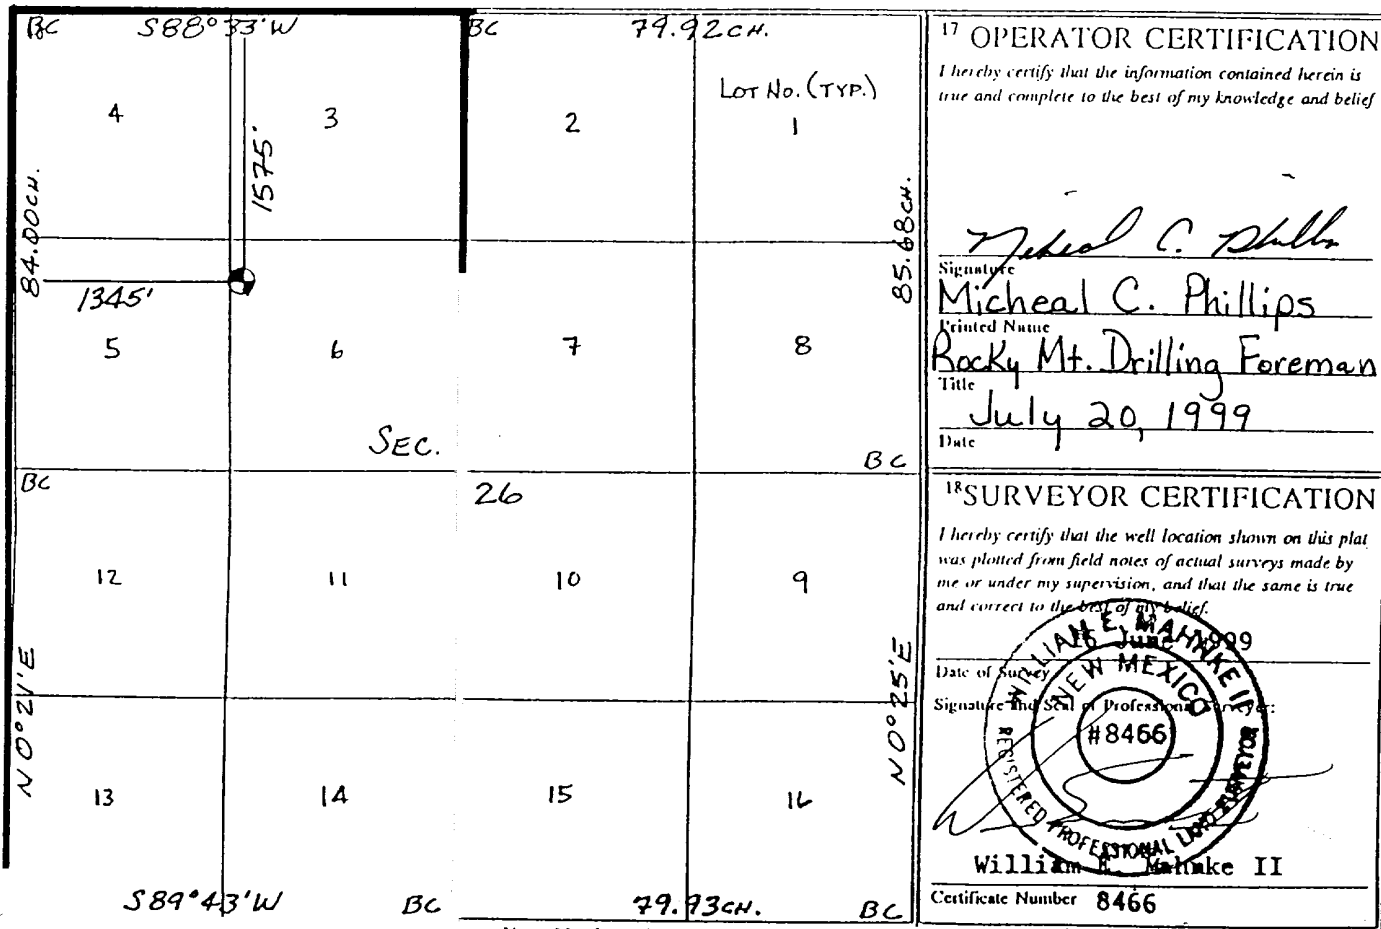 BC S88°33'W BC 79.92CH.
LOT NO. (TYP.)
4 3 2 1
1575'
84.00CH.
85.68CH.
1345'
5 6 7 8
SEC.
BC
BC
26
12 11 10 9
N0°21'E
N0°25'E
13 14 15 16
S89°43'W BC 79.93CH. BC
17 OPERATOR CERTIFICATION
I hereby certify that the information contained herein is
true and complete to the best of my knowledge and belief
Micheal C. Phillips
Signature
Micheal C. Phillips
Printed Name
Rocky Mt. Drilling Foreman
Title
July 20, 1999
Date
18 SURVEYOR CERTIFICATION
I hereby certify that the well location shown on this plat
was plotted from field notes of actual surveys made by
me or under my supervision, and that the same is true
and correct to the best of my belief.
June 1999
Date of Survey
Signature and Seal of Professional Surveyor:
WILLIAM E. MAHNKE II
NEW MEXICO
#8466
REGISTERED PROFESSIONAL LAND SURVEYOR
William E. Mahnke II
Certificate Number 8466